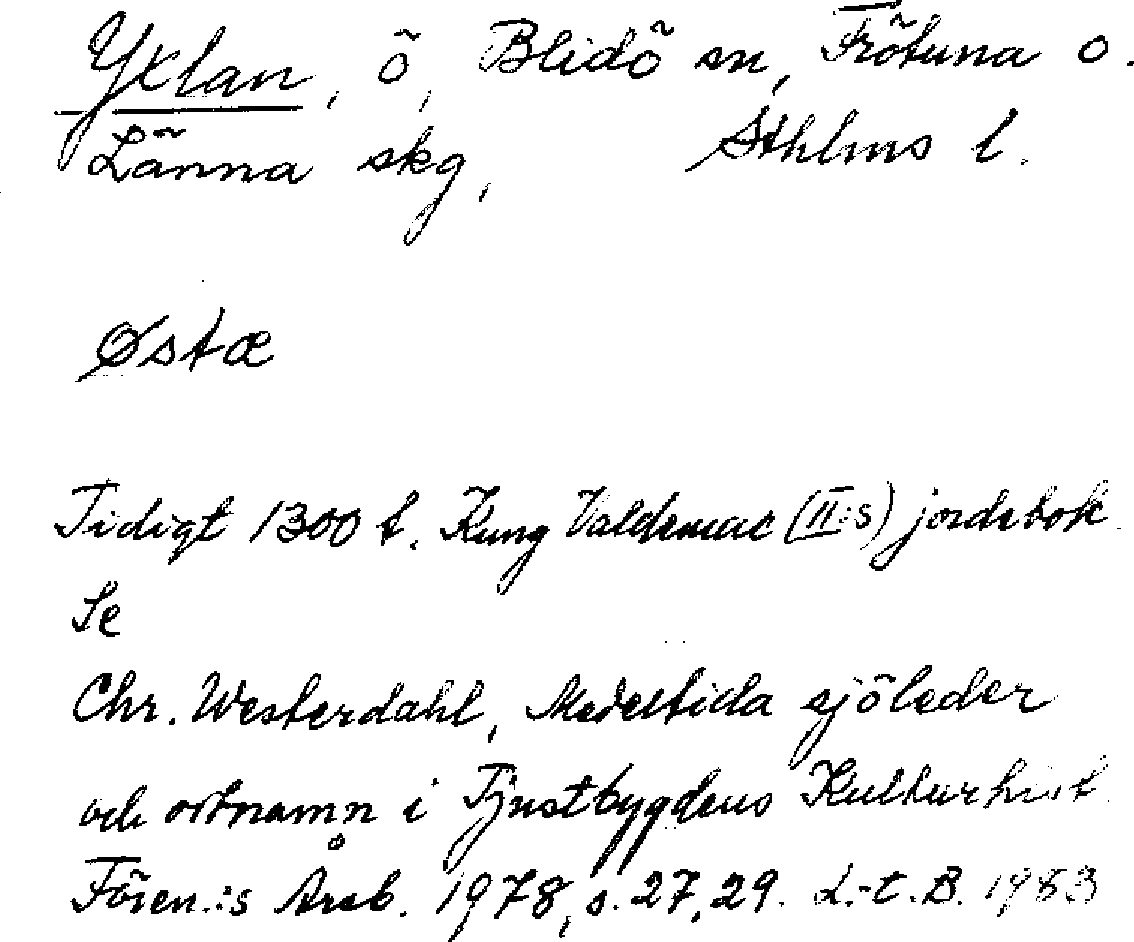 Yxlan, ö, Blidö sn, Frötuna o.
Länna skg, Sthlms l.
Østæ
Tidigt 1300 t. Kung Valdemar (II:s) jordebok.
Se
Chr. Westerdahl, Medeltida sjöleder
och ortnamn i Tjustbygdens Kulturhist.
Fören.:s Årsb. 1978, s. 27, 29. L-t. B. 1983